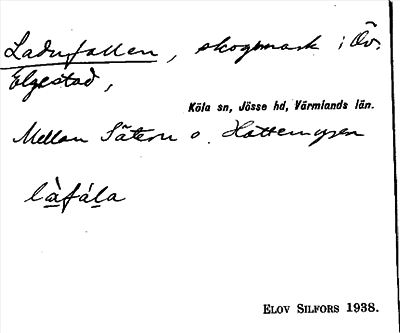 Ladufallen, skogsmark i Öv.
Elgestad,
Köla sn, Jösse hd, Värmlands län.
Mellan Sätern o. Hattemyren
là̱fáḻa
ELOV SILFORS 1938.